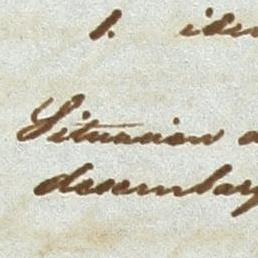 1. iden
Situacion a
desembar